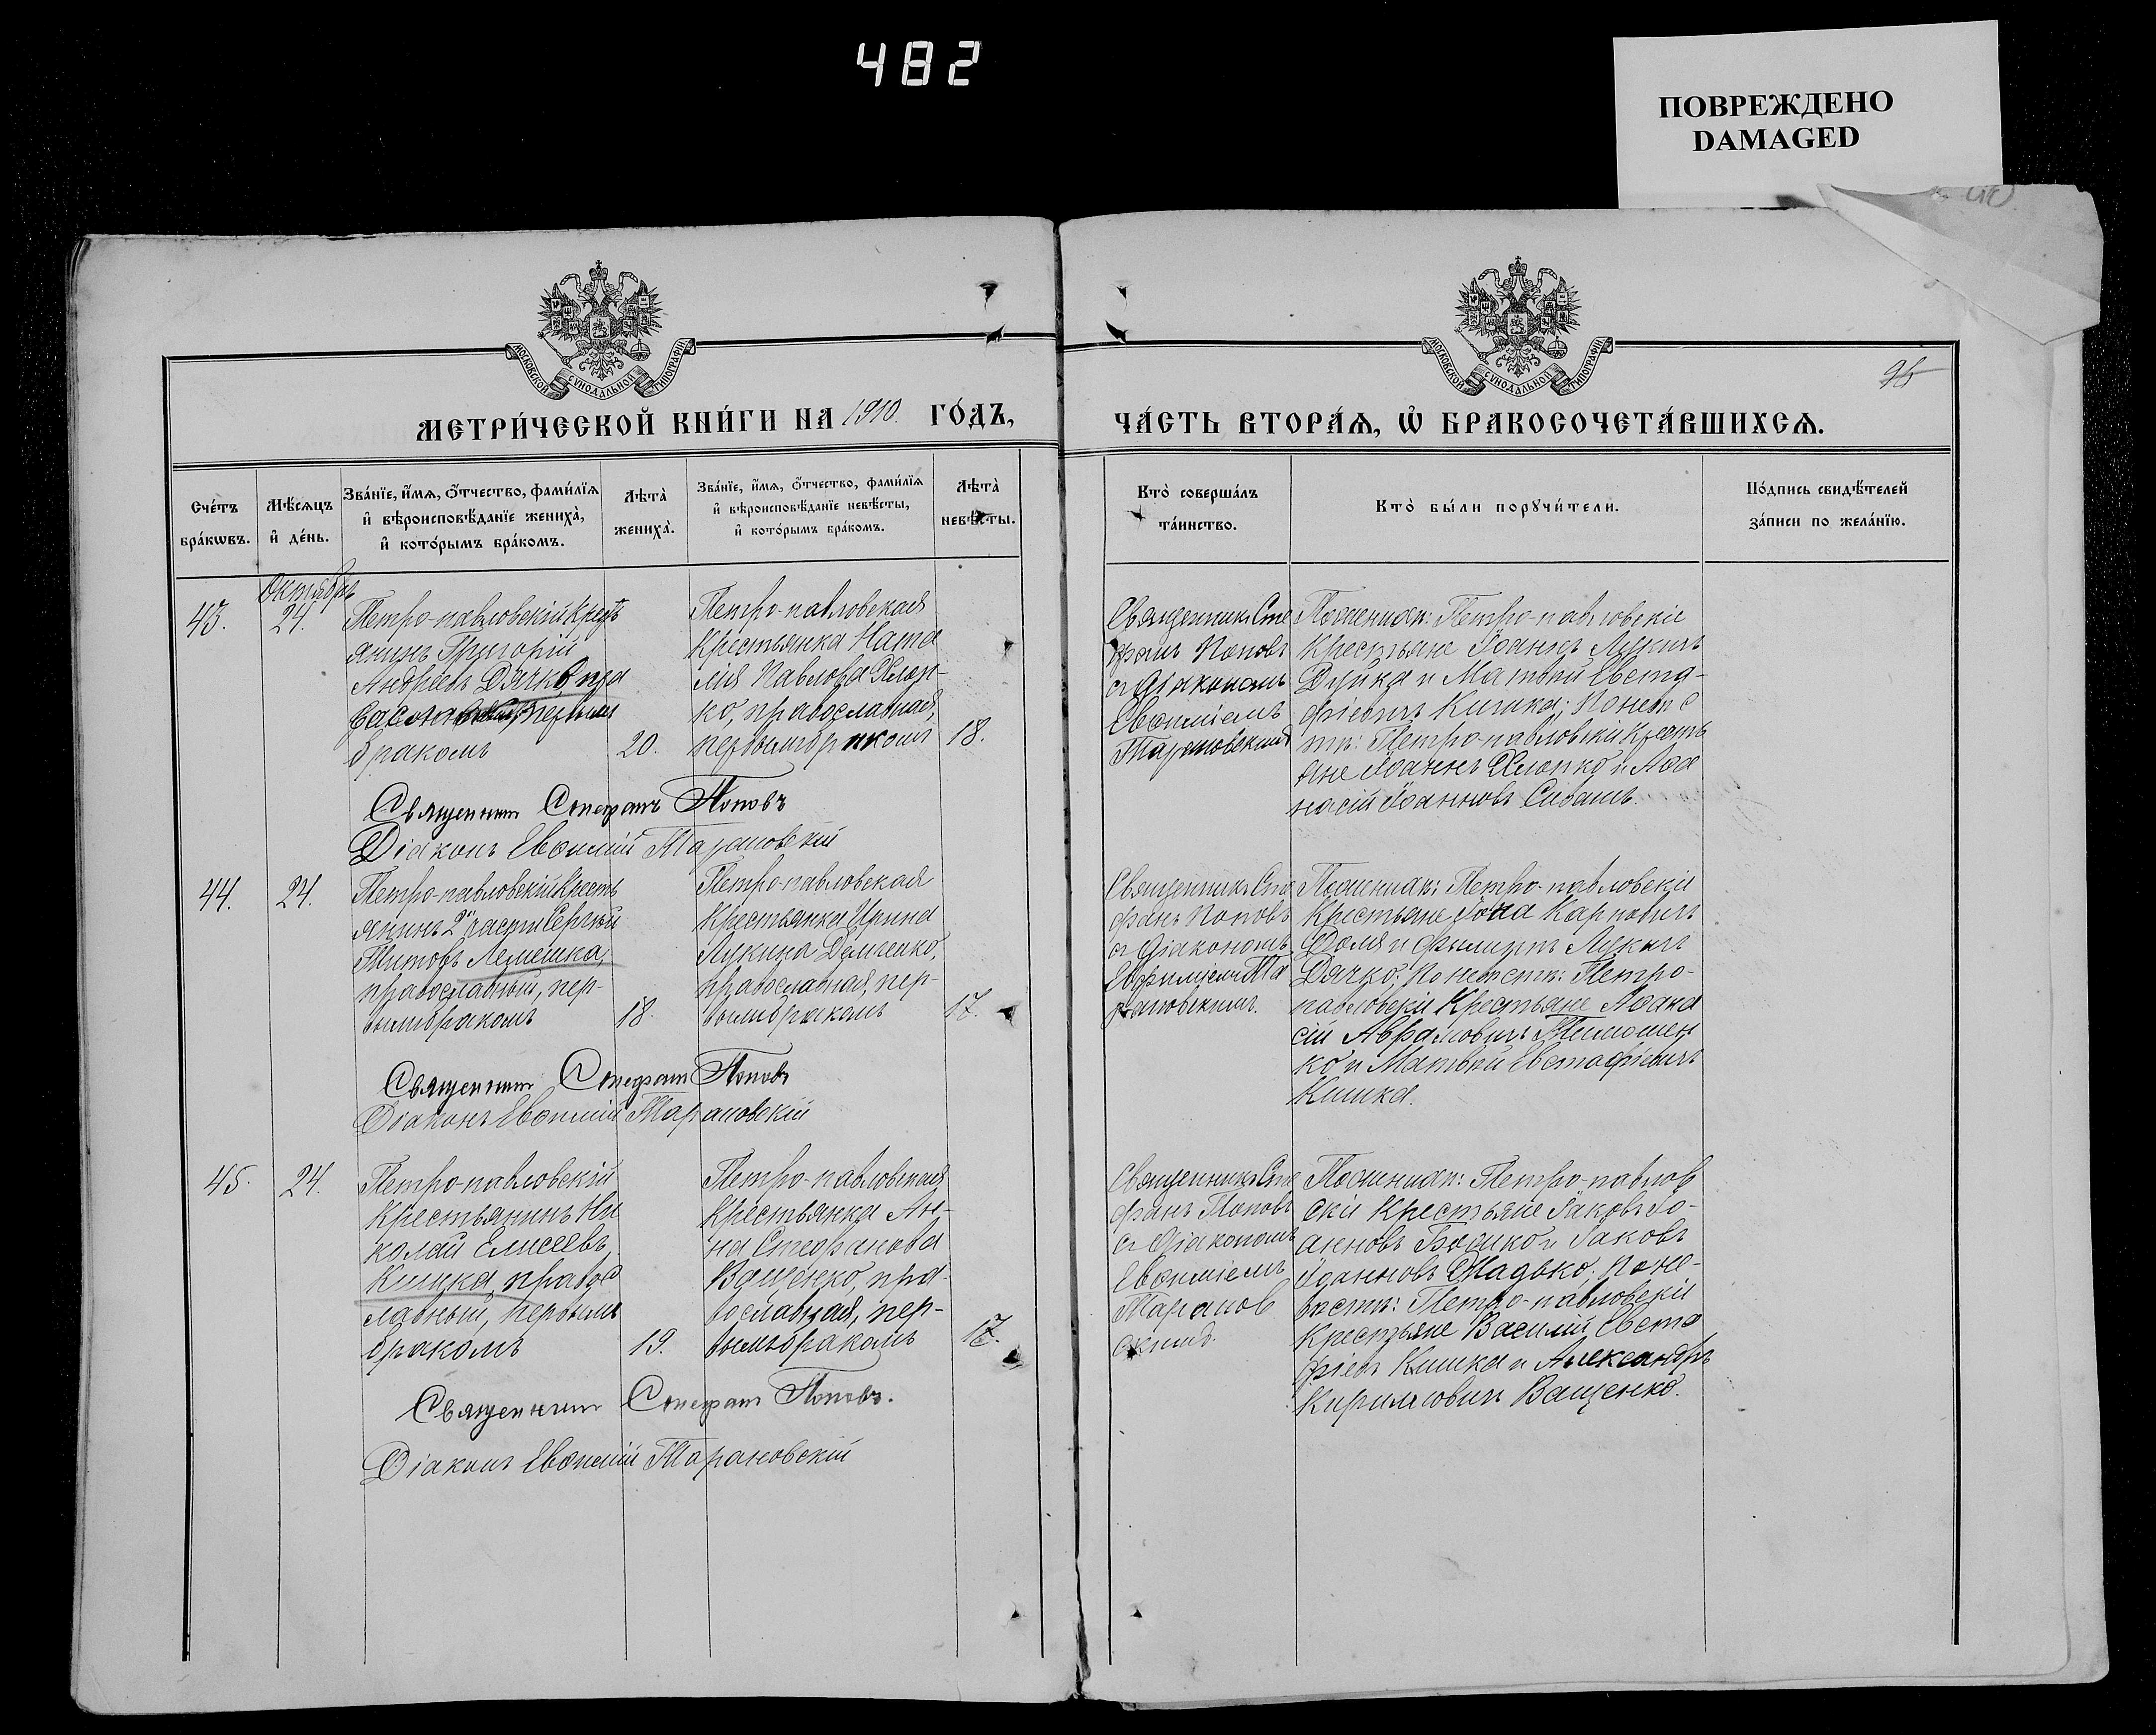 482
ПОВРЕЖДЕНО
DAMAGED
МОСКОВСКОЙ СѴНОДАЛЬНОЙ ТИПОГРАФІИ
МОСКОВСКОЙ СѴНОДАЛЬНОЙ ТИПОГРАФІИ
МЕТРИ́ЧЕСКОЙ КНИ́ГИ НА 1910. ГО́ДЪ,
ЧА́СТЬ ВТОРА́Ѧ, Ѡ БРАКОСОЧЕТА́ВШИХСѦ.
Сче́тъ
бра́кѡвъ.
Мѣ́сѧцъ
и҆ де́нь.
Зва́нїе, и҆́мѧ, ѻ҆́тчество, фами́лїѧ
и҆ вѣроисповѣ́данїе жениха̀,
и҆ кото́рымъ бра́комъ.
Лѣта̀
жениха̀.
Зва́нїе, и҆́мѧ, ѻ҆́тчество, фами́лїѧ
и҆ вѣроисповѣ́данїе невѣ́сты,
и҆ кото́рымъ бра́комъ.
Лѣта̀
невѣ́сты.
Кто̀ соверша́лъ
та́инство.
Кто̀ бы́ли порꙋчи́тели.
По́дпись свидѣ́телей
за́писи по жела́нїю.
Октябрь
43.
24.
Петро-павловскій кресть
янинъ Григорій
Андреевъ Дячко, пра
первым
бракомъ
20.
Петро-павловская
Крестьянка Ната
лія Павлова Хлоп-
ко, православная,
первымъ бракомъ
18.
Священникъ Сте
фанъ Поповъ
съ Діакономъ
Евѳиміемъ
Тарановскимъ
По женихѣ: Петро-павловскіе
Крестьяне Іоаннъ Лукичъ
Дуйка и Матвѣй Евста-
фіевичъ Кишка; По невѣс
тѣ: Петро-павловскіе Кресть
яне Іоаннъ Хлопко и Аѳа
насій Іоанновъ Сивашъ.
Священникъ Стефанъ Поповъ
Діаконъ Евѳимій Тарановскій
44.
24.
Петро-павловскій кресть
янинъ 2й части Сергѣй
Титовъ Лемешка,
православный, пер-
вымъ бракомъ
18.
Петро-павловская
Крестьянка Ирина
Лукина Демченко,
православная, пер-
вымъ бракомъ
17.
Священникъ Сте
фанъ Поповъ
съ Діакономъ
Евфиміемъ Та
рановскимъ.
По женихѣ: Петро-павловскіе
Крестьяне Іона Карповичъ
Доля и Филиппъ Лукичъ
Дячко; По невѣстѣ: Петро-
павловскіе Крестьяне Аѳана
сій Аврамовичъ Тимошен
ко и Матвѣй Евстафіевичъ
Кишка.
Священникъ Стефанъ Поповъ
Діаконъ Евѳимій Тарановскій
45.
24.
Петро-павловскій
Крестьянинъ Ни
колай Елисеевъ
Кишка, правос
лавный, первымъ
бракомъ
19.
Петро-павловская
Крестьянка Ан-
на Стефанова
Ващенко, пра-
вославная, пер-
вымъ бракомъ
17.
Священникъ Сте
фанъ Поповъ
съ Діакономъ
Евѳиміемъ
Таранов
скимъ.
По женихѣ: Петро-павлов
скіе Крестьяне Іаковъ Іо-
анновъ Божко и Іаковъ
Іоанновъ Дядько; По не-
вѣстѣ: Петро-павловскіе
Крестьяне Василій Евста
фіевъ Кишка и Александръ
Кирилловичъ Ващенко.
Священникъ Стефанъ Поповъ.
Діаконъ Евѳимій Тарановскій